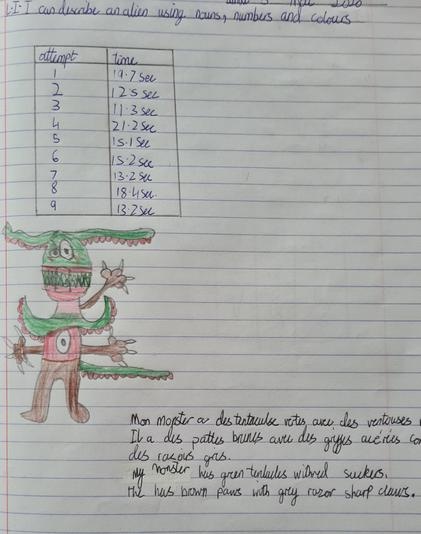 L.I- I can describe an alien using nouns, numbers and colours
attempt time
1 19.7 sec
2 12.5 sec
3 11.3 sec
4 21.2 sec
5 15.1 sec
6 15.2 sec
7 13.2 sec
8 18.4 sec.
9 13.2 sec
Mon monster a des tentaculse vertes avec des ventouses
Il a des pattes bruns avec des griffes acérées
des rasoirs gris.
My monster has green tentacles with red suckers.
He has brown paws with grey razor sharp claws.